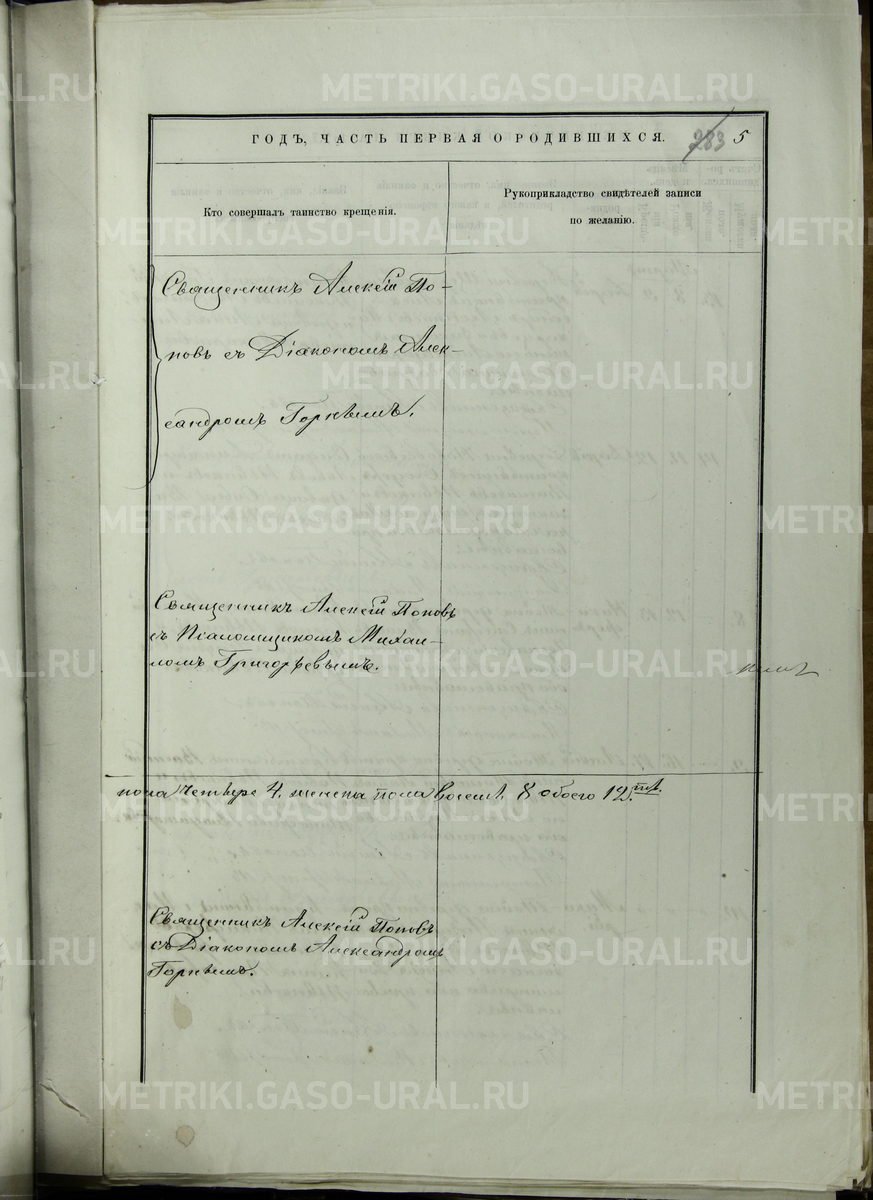 ГОДЪ, ЧАСТЬ ПЕРВАЯ О РОДИВШИХСЯ. 283 5
Кто совершалъ таинство крещенія.
Рукоприкладство свидѣтелей записи
по желанію.
Священникъ Алексій По-
повъ съ Діакономъ Алек-
сандромъ Горнымъ.
Священникъ Алексій Поповъ
съ Псаломщикомъ Михаи-
ломъ Григорьевымъ.
пола четверо 4. женска пола восемь 8 обоего 12.
Священникъ Алексій Поповъ
съ Діакономъ Александромъ
Горнымъ.
METRIKI.GASO-URAL.RU